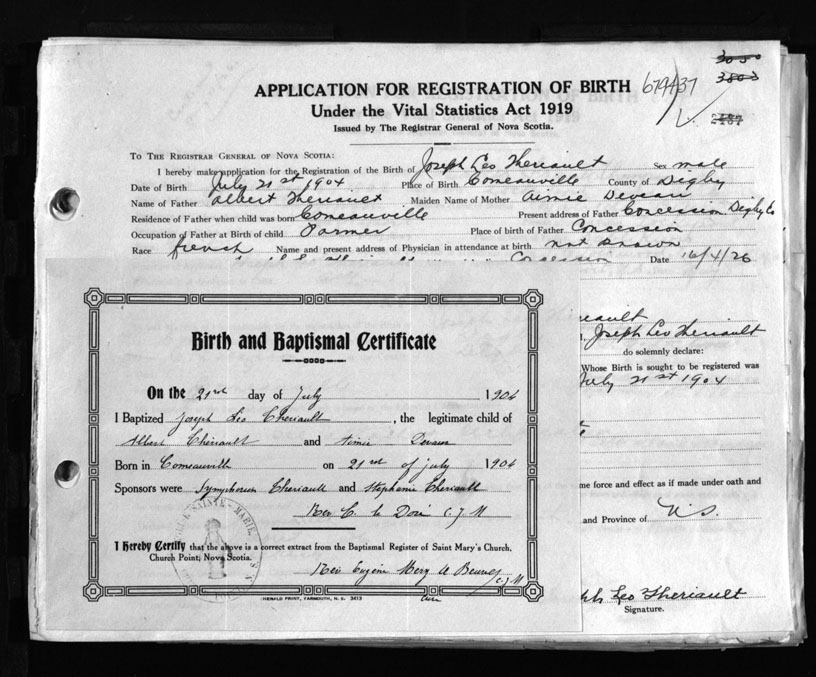 3050
3803
679437
2487
APPLICATION FOR REGISTRATION OF BIRTH
Under the Vital Statistics Act 1919
Issued by The Registrar General of Nova Scotia.
To The Registrar General of Nova Scotia:
I hereby make application for the Registration of the Birth of Joseph Leo Theriault Sex male
Date of Birth July 21st 1904 Place of Birth Comeauville County of Digby
Name of Father Albert Theriault Maiden Name of Mother Aimie
Residence of Father when child was born Comeauville Present address of Father Concession Digby Co
Occupation of Father at Birth of child Farmer Place of birth of Father Concession
Race french Name and present address of Physician in attendance at birth not known
Concession Date 16/4/26
Birth and Baptismal Certificate
On the 21st day of July 1904
I Baptized Joseph Leo Theriault , the legitimate child of
Albert Theriault and Aimie
Born in Comeauville on 21st of July 1904
Sponsors were Theriault and Stephanie Theriault
Rev C. le Doré C.J.M
I Hereby Certify that the above is a correct extract from the Baptismal Register of Saint Mary's Church,
Church Point, Nova Scotia.
SAINTE-MARIE
Rev Eugène Mary
C.J.M
HERALD PRINT, YARMOUTH, N. S. 3413
Theriault
Joseph Leo Theriault
do solemnly declare:
Whose Birth is sought to be registered was
July 21st 1904
me force and effect as if made under oath and
and Province of N.S.
Leo Theriault
Signature.